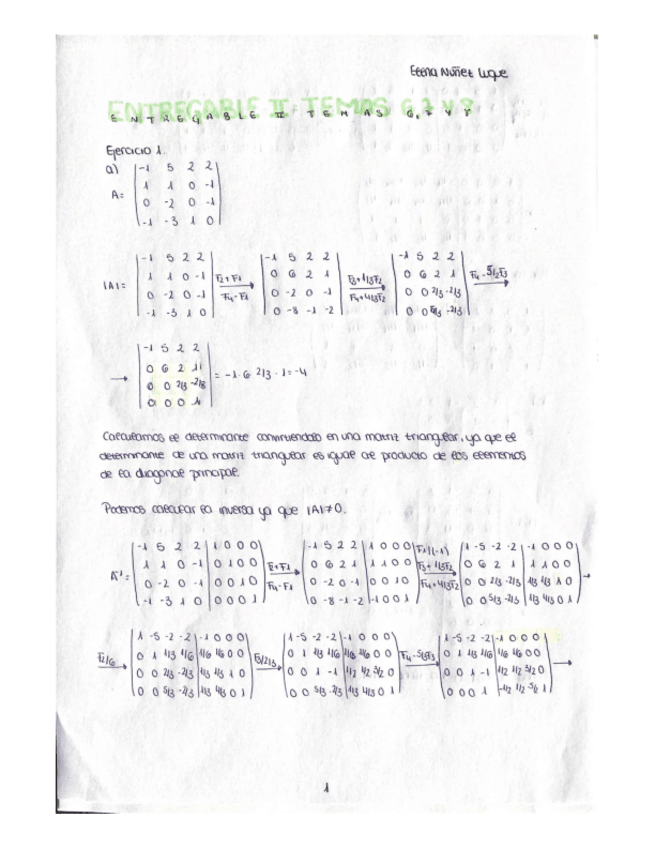 Elena Núñez Luque
ENTREGABLE II: TEMAS 6, 7 Y 8
ENTREGABLE II: TEMAS 6, 7 Y 8
Ejercicio 1.
a)
A=
-1 5 2 2
1 1 0 -1
0 -2 0 -1
-1 -3 1 0
|A|=
-1 5 2 2
1 1 0 -1
0 -2 0 -1
-1 -3 1 0
F2+F1
F4-F1
-1 5 2 2
0 6 2 1
0 -2 0 -1
0 -8 -1 -2
F3+1/3F2
F4+4/3F2
-1 5 2 2
0 6 2 1
0 0 2/3 -2/3
0 0 5/3 -2/3
F4-5/2F3
→
-1 5 2 2
0 6 2 1
0 0 2/3 -2/3
0 0 0 1
= -1·6·2/3·1=-4
Calculamos el determinante convirtiendolo en una matriz triangular, ya que el
determinante de una matriz triangular es igual al producto de los elementos
de la diagonal principal.
Podemos calcular la inversa ya que |A|≠0.
A⁻¹=
-1 5 2 2 | 1 0 0 0
1 1 0 -1 | 0 1 0 0
0 -2 0 -1 | 0 0 1 0
-1 -3 1 0 | 0 0 0 1
F2+F1
F4-F1
-1 5 2 2 | 1 0 0 0
0 6 2 1 | 1 1 0 0
0 -2 0 -1 | 0 0 1 0
0 -8 -1 -2 | -1 0 0 1
F1(-1)
F3+1/3F2
F4+4/3F2
1 -5 -2 -2 | -1 0 0 0
0 6 2 1 | 1 1 0 0
0 0 2/3 -2/3 | 1/3 1/3 1 0
0 0 5/3 -2/3 | 1/3 4/3 0 1
→
F2/6
1 -5 -2 -2 | -1 0 0 0
0 1 1/3 1/6 | 1/6 1/6 0 0
0 0 2/3 -2/3 | 1/3 1/3 1 0
0 0 5/3 -2/3 | 1/3 4/3 0 1
F3/2/3
1 -5 -2 -2 | -1 0 0 0
0 1 1/3 1/6 | 1/6 1/6 0 0
0 0 1 -1 | 1/2 1/2 3/2 0
0 0 5/3 -2/3 | 1/3 4/3 0 1
F4-5/3F3
1 -5 -2 -2 | -1 0 0 0
0 1 1/3 1/6 | 1/6 1/6 0 0
0 0 1 -1 | 1/2 1/2 3/2 0
0 0 0 1 | -1/2 1/2 -5/2 1
→
1